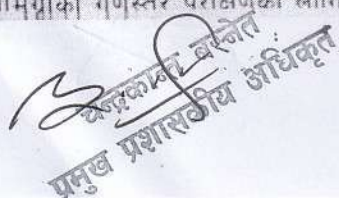 गुणस्तर परीक्षणको
चन्द्रकान्त बस्नेत
प्रमुख प्रशासकीय अधिकृत